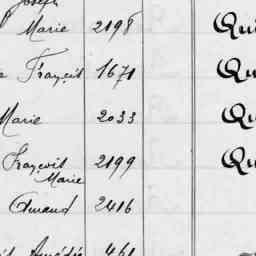 Joseph
Marie 2198 Qu
François 1671 Qu
Marie 2033 Qu
François Marie 2199 Qu
Armand 2416
Amédée 461